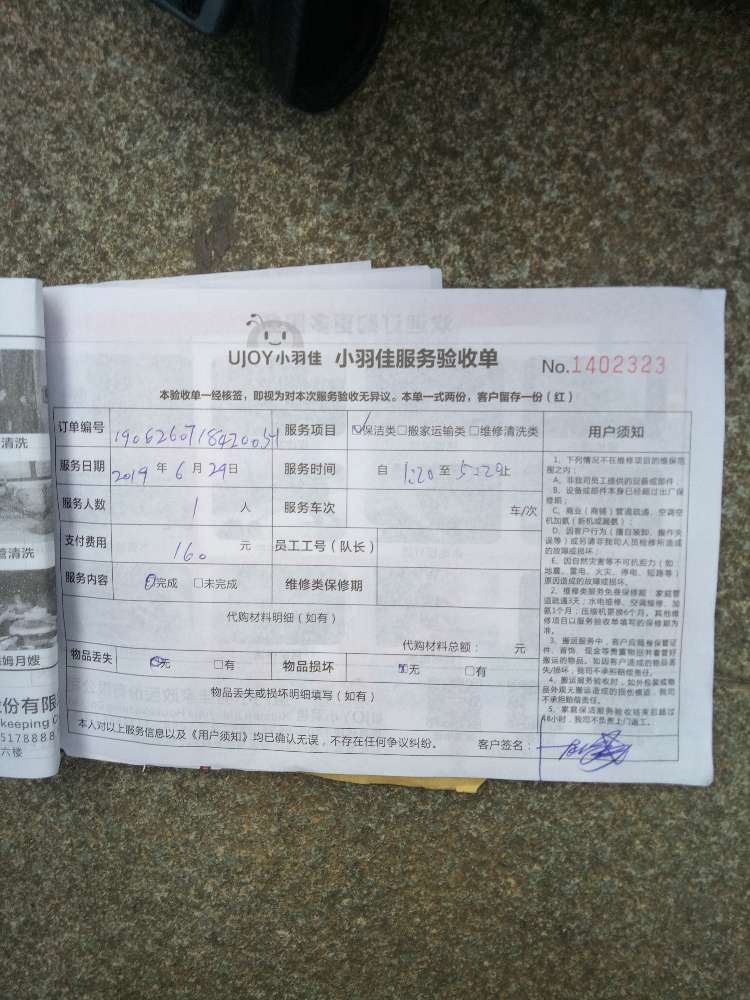 UJOY小羽佳 小羽佳服务验收单 No.1402323
本验收单一经核签，即视为对本次服务验收无异议。本单一式两份，客户留存一份（红）
订单编号 服务项目 ☑保洁类□搬家运输类□维修清洗类 用户须知
服务日期 2019 年 6 月 29 日 服务时间 自 1:20 至 5:20 止
服务人数 1 人 服务车次 车/次
支付费用 160 元 员工工号（队长）
服务内容 □完成 □未完成 维修类保修期
代购材料明细（如有）
代购材料总额： 元
物品丢失 □无 □有 物品损坏 □无 □有
物品丢失或损坏明细填写（如有）
本人对以上服务信息以及《用户须知》均已确认无误，不存在任何争议纠纷。 客户签名：
1、下列情况不在维修项目的维保范
围之内：
A、非我司员工提供的设备或部件；
B、设备或部件本身已经超过出厂保
修期；
C、商业（商铺）管道疏通、空调空
机加氨（新机或漏氨）；
D、因客户行为（擅自装卸、操作失
误等）或另请非我司人员检修所造成
的故障或损坏；
E、因自然灾害等不可抗拒力（如：
地震、雷电、火灾、停电、短路等）
原因造成的故障或损坏。
2、维修类服务免费保修期：家庭管
道疏通3天；水电维修、空调维修、加
氨1个月；压缩机更换6个月。其他维
修项目以服务验收单填写的保修期为
准。
3、搬运服务中，客户应随身保管证
件、首饰、现金等贵重物班并看管好
搬运的物品。如因客户造成的物品丢
失/损坏，我司不承担赔偿责任。
4、搬运服务验收时，如外包装或物
品外观无搬运造成的损伤痕迹，我司
不承担赔偿责任。
5、家庭保洁服务验收结束后超过
48小时，我司不负责上门返工。
清洗
管清洗
保姆月嫂
份有限
keeping C
5178888
六楼